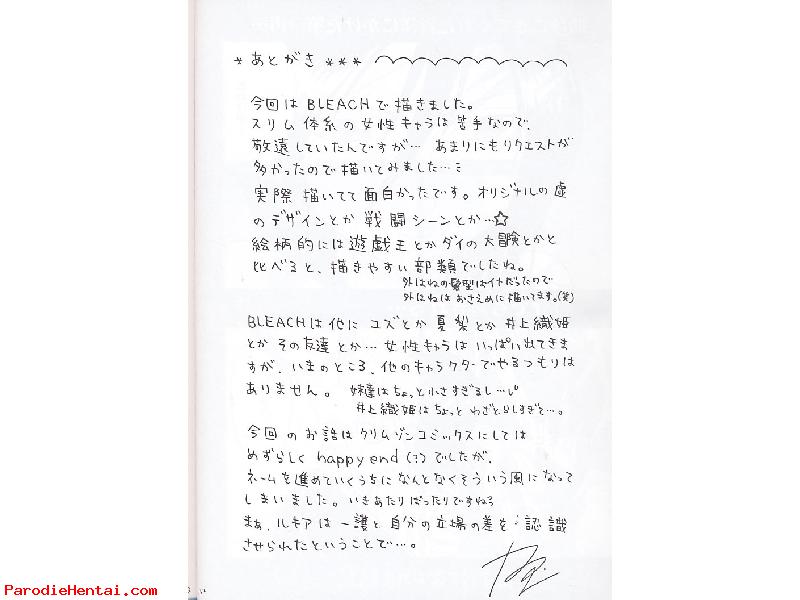 *あとがき***
今回はBLEACHで描きました。
スリム体系の女性キャラは苦手なので、
敬遠していたんですが… あまりにもリクエストが
多かったので描いてみました…
実際描いてて面白かったです。オリジナルの虚
のデザインとか戦闘シーンとか…☆
絵柄的には遊戯王とかダイの大冒険とかと
比べると、描きやすい部類でしたね。
外はねの髪型はイヤだったので
外はねはおさえめに描いてます。(笑)
BLEACHは他にユズとか夏梨とか井上織姫
とかその友達とか…女性キャラはいっぱい出てきま
すが、いまのところ、他のキャラクターでやるつもりは
ありません。 妹達はちょっと小さすぎるし…
井上織姫はちょっとわざとらしすぎて…。
今回のお話はクリムゾンコミックスにしては
めずらしく happy end (?) でしたが、
ネームを進めていくうちになんとなくそういう風になって
しまいました。いきあたりばったりですねぇ
まぁ、ルキアは一護と自分の立場の差を認識
させられたということで…。
ParodieHentai.com